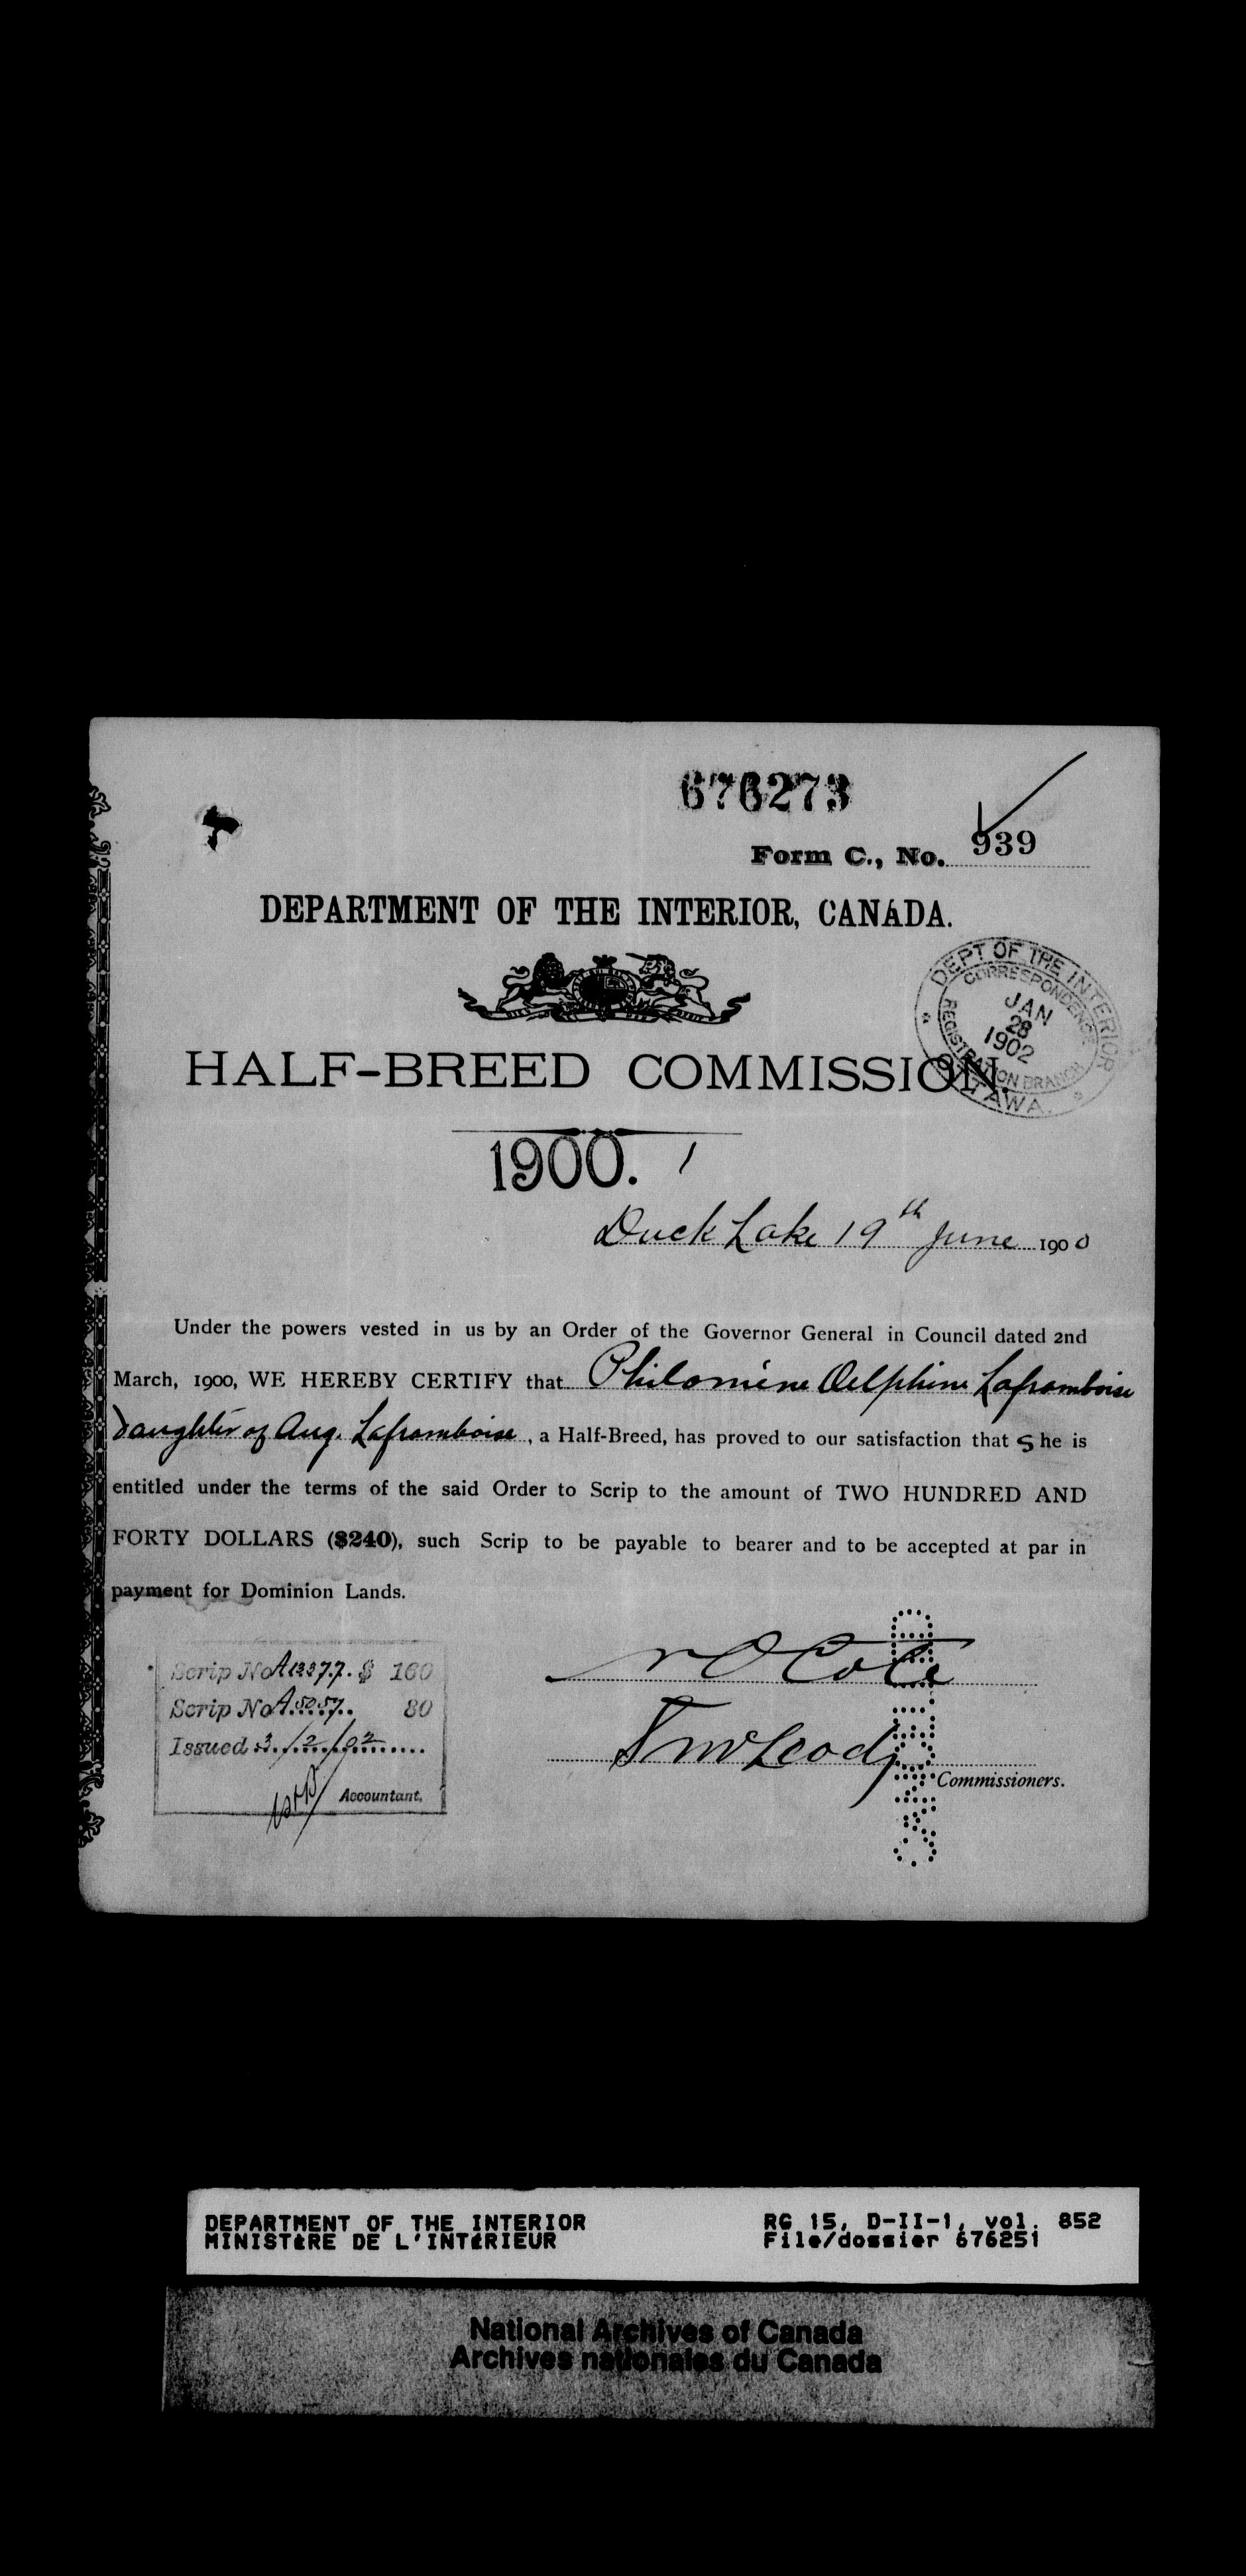 676273
Form C., No. 939
DEPARTMENT OF THE INTERIOR, CANADA.
DEPT OF THE INTERIOR
CORRESPONDENCE
JAN
28
1902
REGISTRATION BRANCH
OTTAWA.
HALF-BREED COMMISSION.
1900.
Duck Lake 19th June 1900
Under the powers vested in us by an Order of the Governor General in Council dated 2nd
March, 1900, WE HEREBY CERTIFY that Philomène Delphine Laframboise
daughter of Aug. Laframboise, a Half-Breed, has proved to our satisfaction that She is
entitled under the terms of the said Order to Scrip to the amount of TWO HUNDRED AND
FORTY DOLLARS ($240), such Scrip to be payable to bearer and to be accepted at par in
payment for Dominion Lands.
Scrip No A12377. $ 160
Scrip No A5057. 80
Issued 3/2/02
Accountant.
N O Cote
J McLeod
Commissioners.
DEPARTMENT OF THE INTERIOR RG 15, D-II-1, vol. 852
MINISTÈRE DE L'INTÉRIEUR File/dossier 676251
National Archives of Canada
Archives nationales du Canada